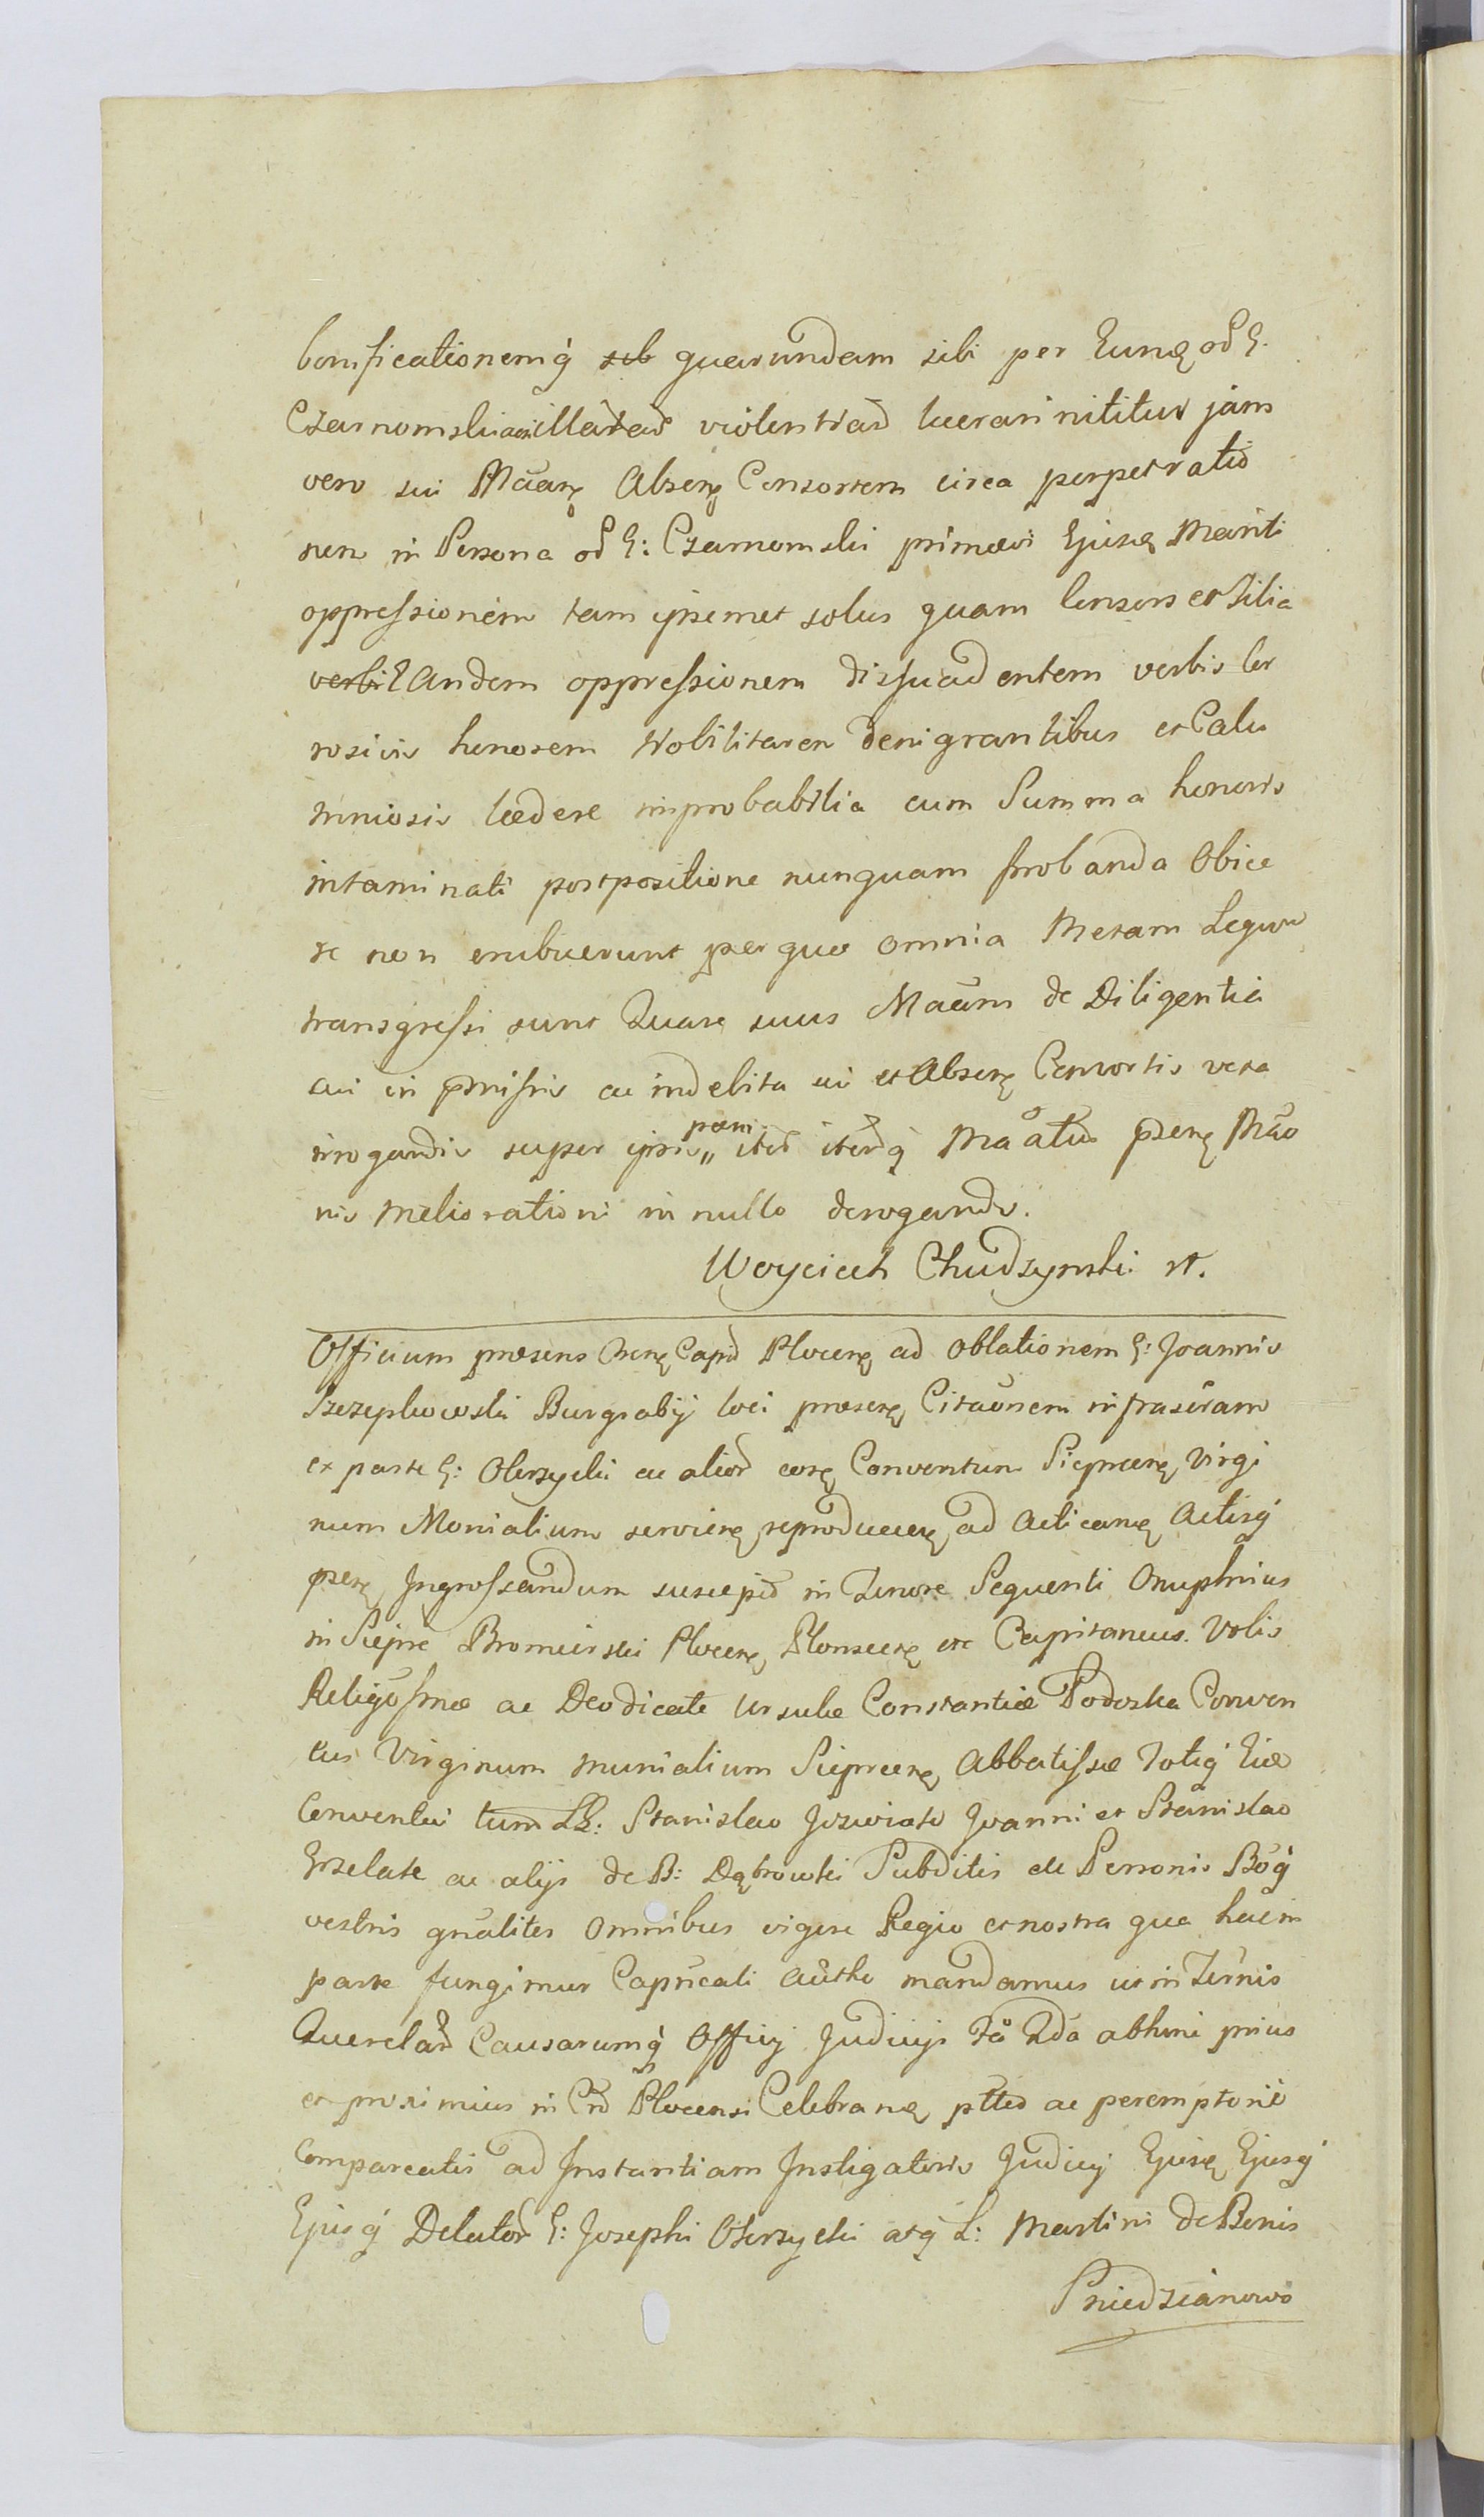 bonificationemq́ sub quarundam sibi per Eunę od G.
Czarnomski illatas violentias lucrari nititur jam
vero sui Mãtrę Absenę Consortem circa perpetratio
nem in Persona od G: Czarnomski primævi Ejusę Mariti
oppressionem tam ipsemet solus quam Consors et Filia
verbi Eandem oppressionem dissuadentem verbis Cor
rosivis honorem Nobilitarem denigrantibus et Calu
mniosis lædere improbabilia cum Summa honoris
intaminati postpositione nunquam probanda Obice
re non erubuerunt per quæ omnia Metam Legum
transgressi sunt Quare suus Maãns de Diligentia
sui in præmissis ac indebita sui et Absenę Consortis
irrogandis super ipsis pœnis iterũ iterũq́ Mãtus præsenę Mãõ
nis Meliorationi in nullo derogando.
Woyciech Chudzynski
Officium præsens Crenę Capłe Plocenę ad Oblationem G: Joannis
Szczepkowski Burgrabij loci præsenę Citãõnem infrascr̃am
ex parte G: Olszycki ac alior̃ corę Conventum Sieprcenę Virgi
num Monialium servienę reproducenę ad Acticanę Actisq́
præsenę Ingrossandum suscepit in Tenore Sequenti Onuphrius
in Siepre Bromirski Plocenę Plonscenę etc Capitaneus. Vobis
Religiosſmæ ac Deodicatæ Ursulæ Constantiæ Podoska Conven
tus Virginum Monialium Sieprcenę Abbatissæ Totiq́ Eiæ
Conventui tum LL: Stanislao Jozwiato Joanni et Stanislao
ac alijs de B: Dąbrowki Subditis de Personis Boq́
vestris gñaliter Omnibus vigore Regia et nostra qua hac in
parte fungimur Capñeali Authe mandamus ut in Termis
Querelar̃ Causarumq́ Officij Judicijs Fã abhinc prius
et proximius in Crõ Plocensi Celebranę ac peremptorie
Compareatis ad Instantiam Instigatoris Judicij Ejusę Ejusq́
Ejusq́ Delator̃ G: Josephi Olszycki atq́ L: Martini de Bonis
Sniedzianowo